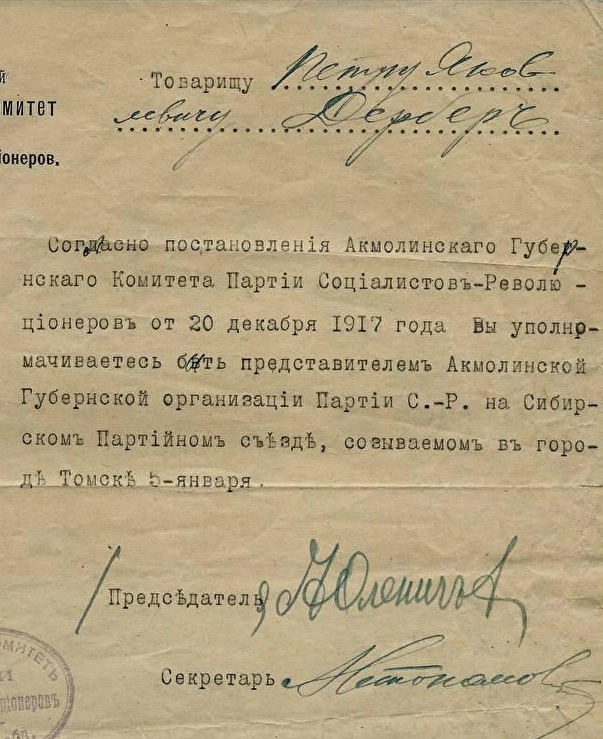 й
Товарищу Петру Яков
митет
левичу Дербер
ионеров.
Согласно постановленiя Акмолинскаго Губер-
нскаго Комитета Партiи Соцiалистовъ-Револю -
цiонеровъ от 20 декабря 1917 года Вы уполно-
мачиваетесь быть представителемъ Акмолинской
Губернской организацiи Партiи С.-Р. на Сибир-
скомъ Партiйном съѣздѣ, созываемом въ горо-
дѣ Томскѣ 5-января.
Предсѣдатель Оленичъ
Секретарь
КОМИТЕТЪ
iонеровъ